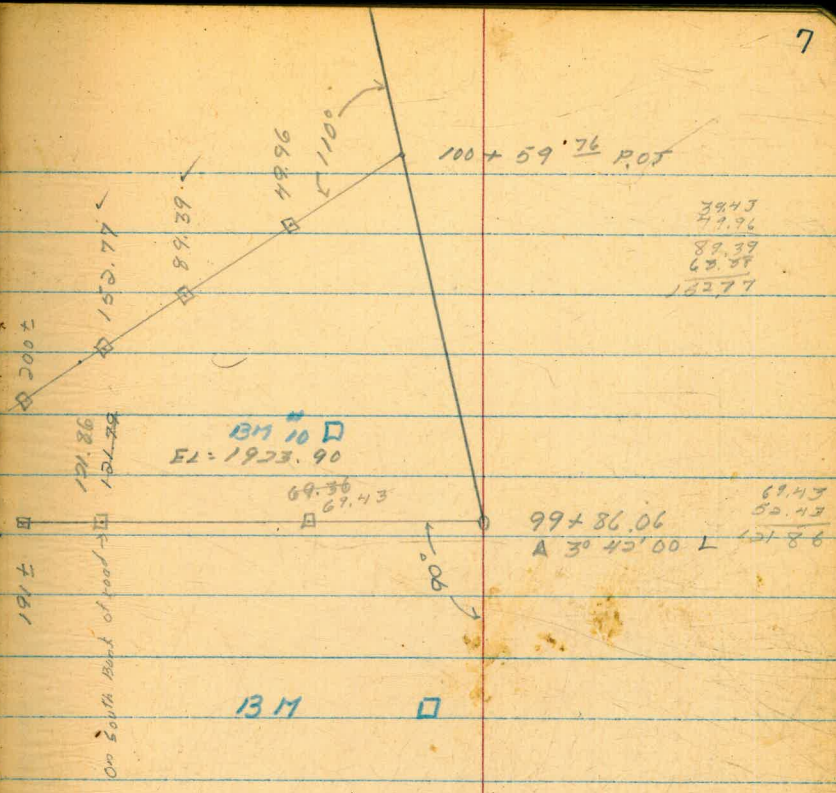 7
110°
100 + 59.76 P.O.T
49.96
89.39 ✓
152.77 ✓
200 ±
39.43
49.96
89.39
63.38
152.77
BM #10
EL = 1923.90
121.86
121.79
69.36
69.43
99 + 86.06
Δ 3° 42' 00 L
69.43
52.43
121.86
90°
191 ±
On South Bank of road →
BM